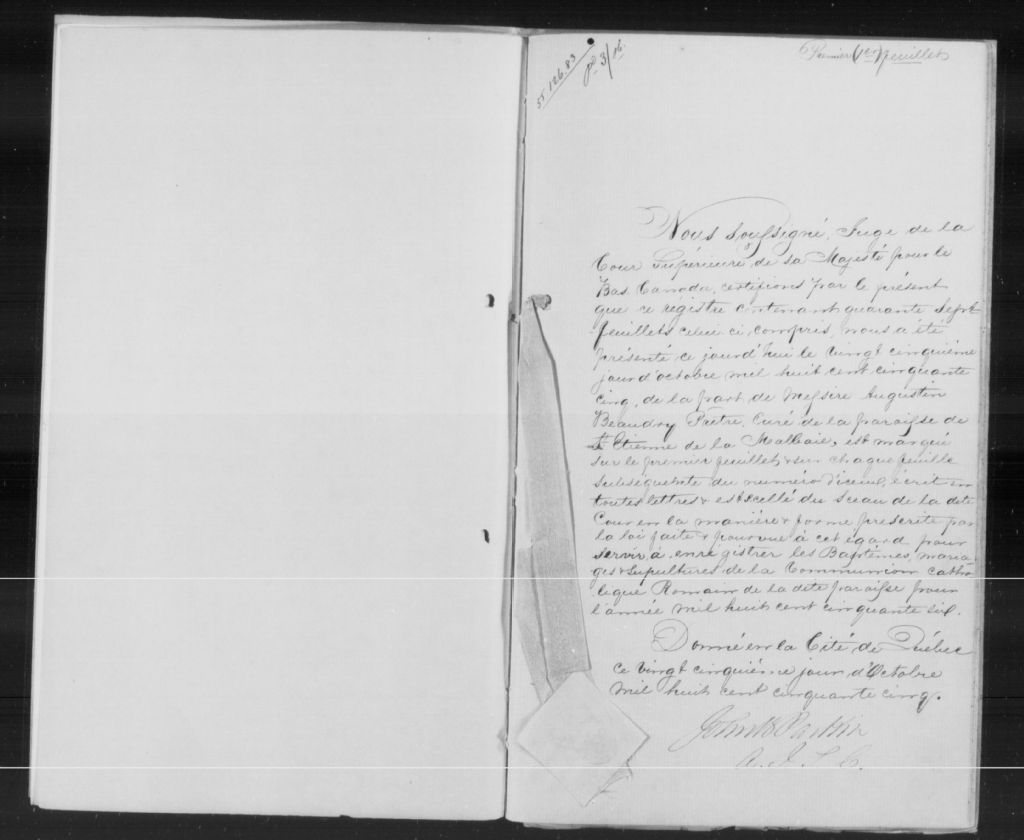 55 106.83
pd 3/16.
Premier (1er) feuillet
Nous soussigné, Juge de la
Cour Supérieure de sa Majesté pour le
Bas Canada, certifions par le présent
que ce régistre contenant quarante Sept
feuillets celui ci, compris, nous a été
présenté ce jourd'hui le vingt cinquième
jour d'octobre mil huit cent cinquante
cinq, de la part de Messire Augustin
Beaudry Prêtre, Curé de la paroisse de
St Etienne de la Malbaie, est marqué
sur le premier feuillet & sur chaque feuille
subséquente du numéro d'iceux, écrit en
toutes lettres & est scellé du Sceau de la dite
Cour en la manière & forme prescrite par
la loi faite & pourvue à cet égard pour
servir à enrégistrer les Baptêmes, maria
ges & Sépultures de la Communion catho
lique Romain de la dite paroisse pour
l'année mil huit cent cinquante six.
Donné en la Cité de Québec
ce vingt cinquième jour d'Octobre
mil huit cent cinquante cinq.
John B Parkin
A. J. S. C.